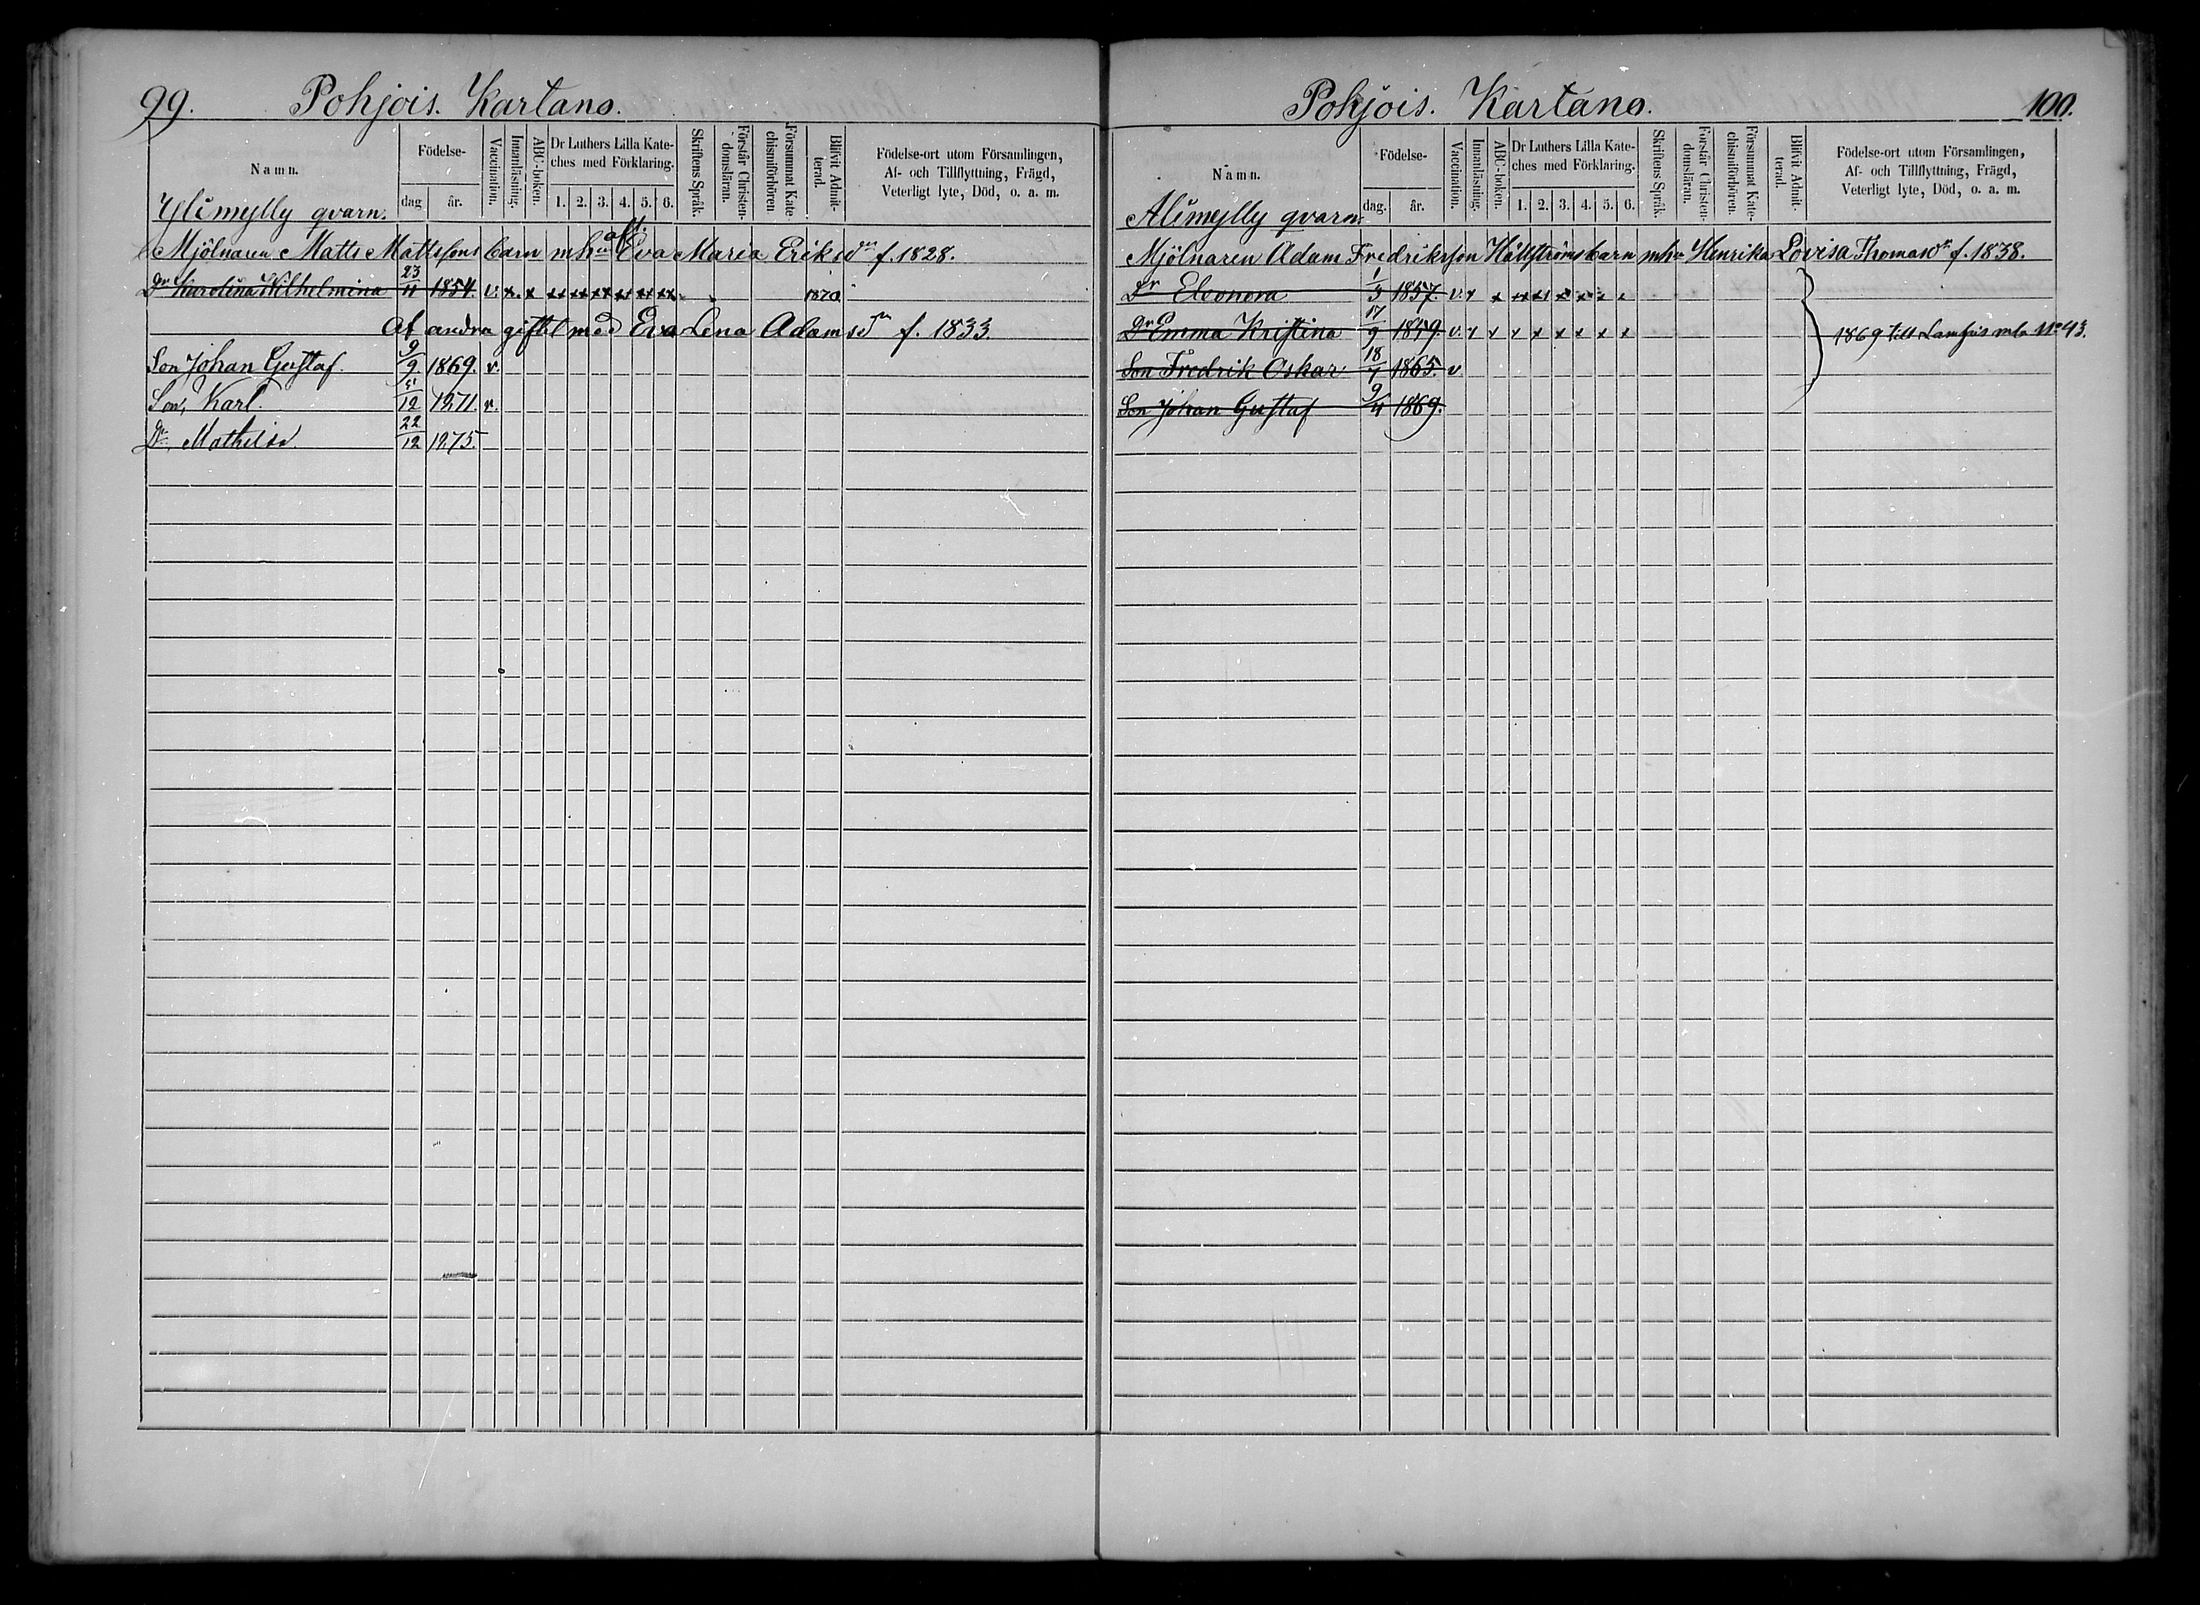 99. Pohjois. Kartano.
Namn.
Födelse-
dag. år.
Vaccination.
Innanläsning.
ABC-boken.
Dr Luthers Lilla Kate-
ches med Förklaring.
1. 2. 3. 4. 5. 6.
Skriftens Språk.
Förstår Christen-
domsläran.
Försummat Kate-
chismiförhören.
Blifvit Admit-
terad.
Födelse-ort utom Församlingen,
Af- och Tillflyttning, Frägd,
Veterligt lyte, Död, o. a. m.
Ylimylly qvarn.
Mjölnaren Matts Mattsons barn mhu Eva Maria Eriksdr f. 1828.
Dr Karolina Wilhelmina 23/11 1854. v. x x xx xx xx xx xx xx 1870
Af andra giftet med Eva Lena Adamsdr f. 1833.
Son Johan Gustaf. 9/9 1869. v.
Son, Karl. 5/12 1871. v.
Dr. Mathilda. 22/12 1875.
Pohjois. Kartano. 100.
Namn.
Födelse-
dag. år.
Vaccination.
Innanläsning.
ABC-boken.
Dr Luthers Lilla Kate-
ches med Förklaring.
1. 2. 3. 4. 5. 6.
Skriftens Språk.
Förstår Christen-
domsläran.
Försummat Kate-
chismiförhören.
Blifvit Admit-
terad.
Födelse-ort utom Församlingen,
Af- och Tillflyttning, Frägd,
Veterligt lyte, Död, o. a. m.
Alimylly qvarn.
Mjölnaren Adam Fredriksson Hällströms barn mhu Henrika Lovisa Thomasdr f. 1838.
Dr Eleonora 1/5 1857. v. x x xx xx x x x x
Dr Emma Kristina 17/9 1859. v. x x x x x x x x
1869 till No 93.
Son Fredrik Oskar 18/7 1865. v
Son Johan Gustaf 9/4 1869.